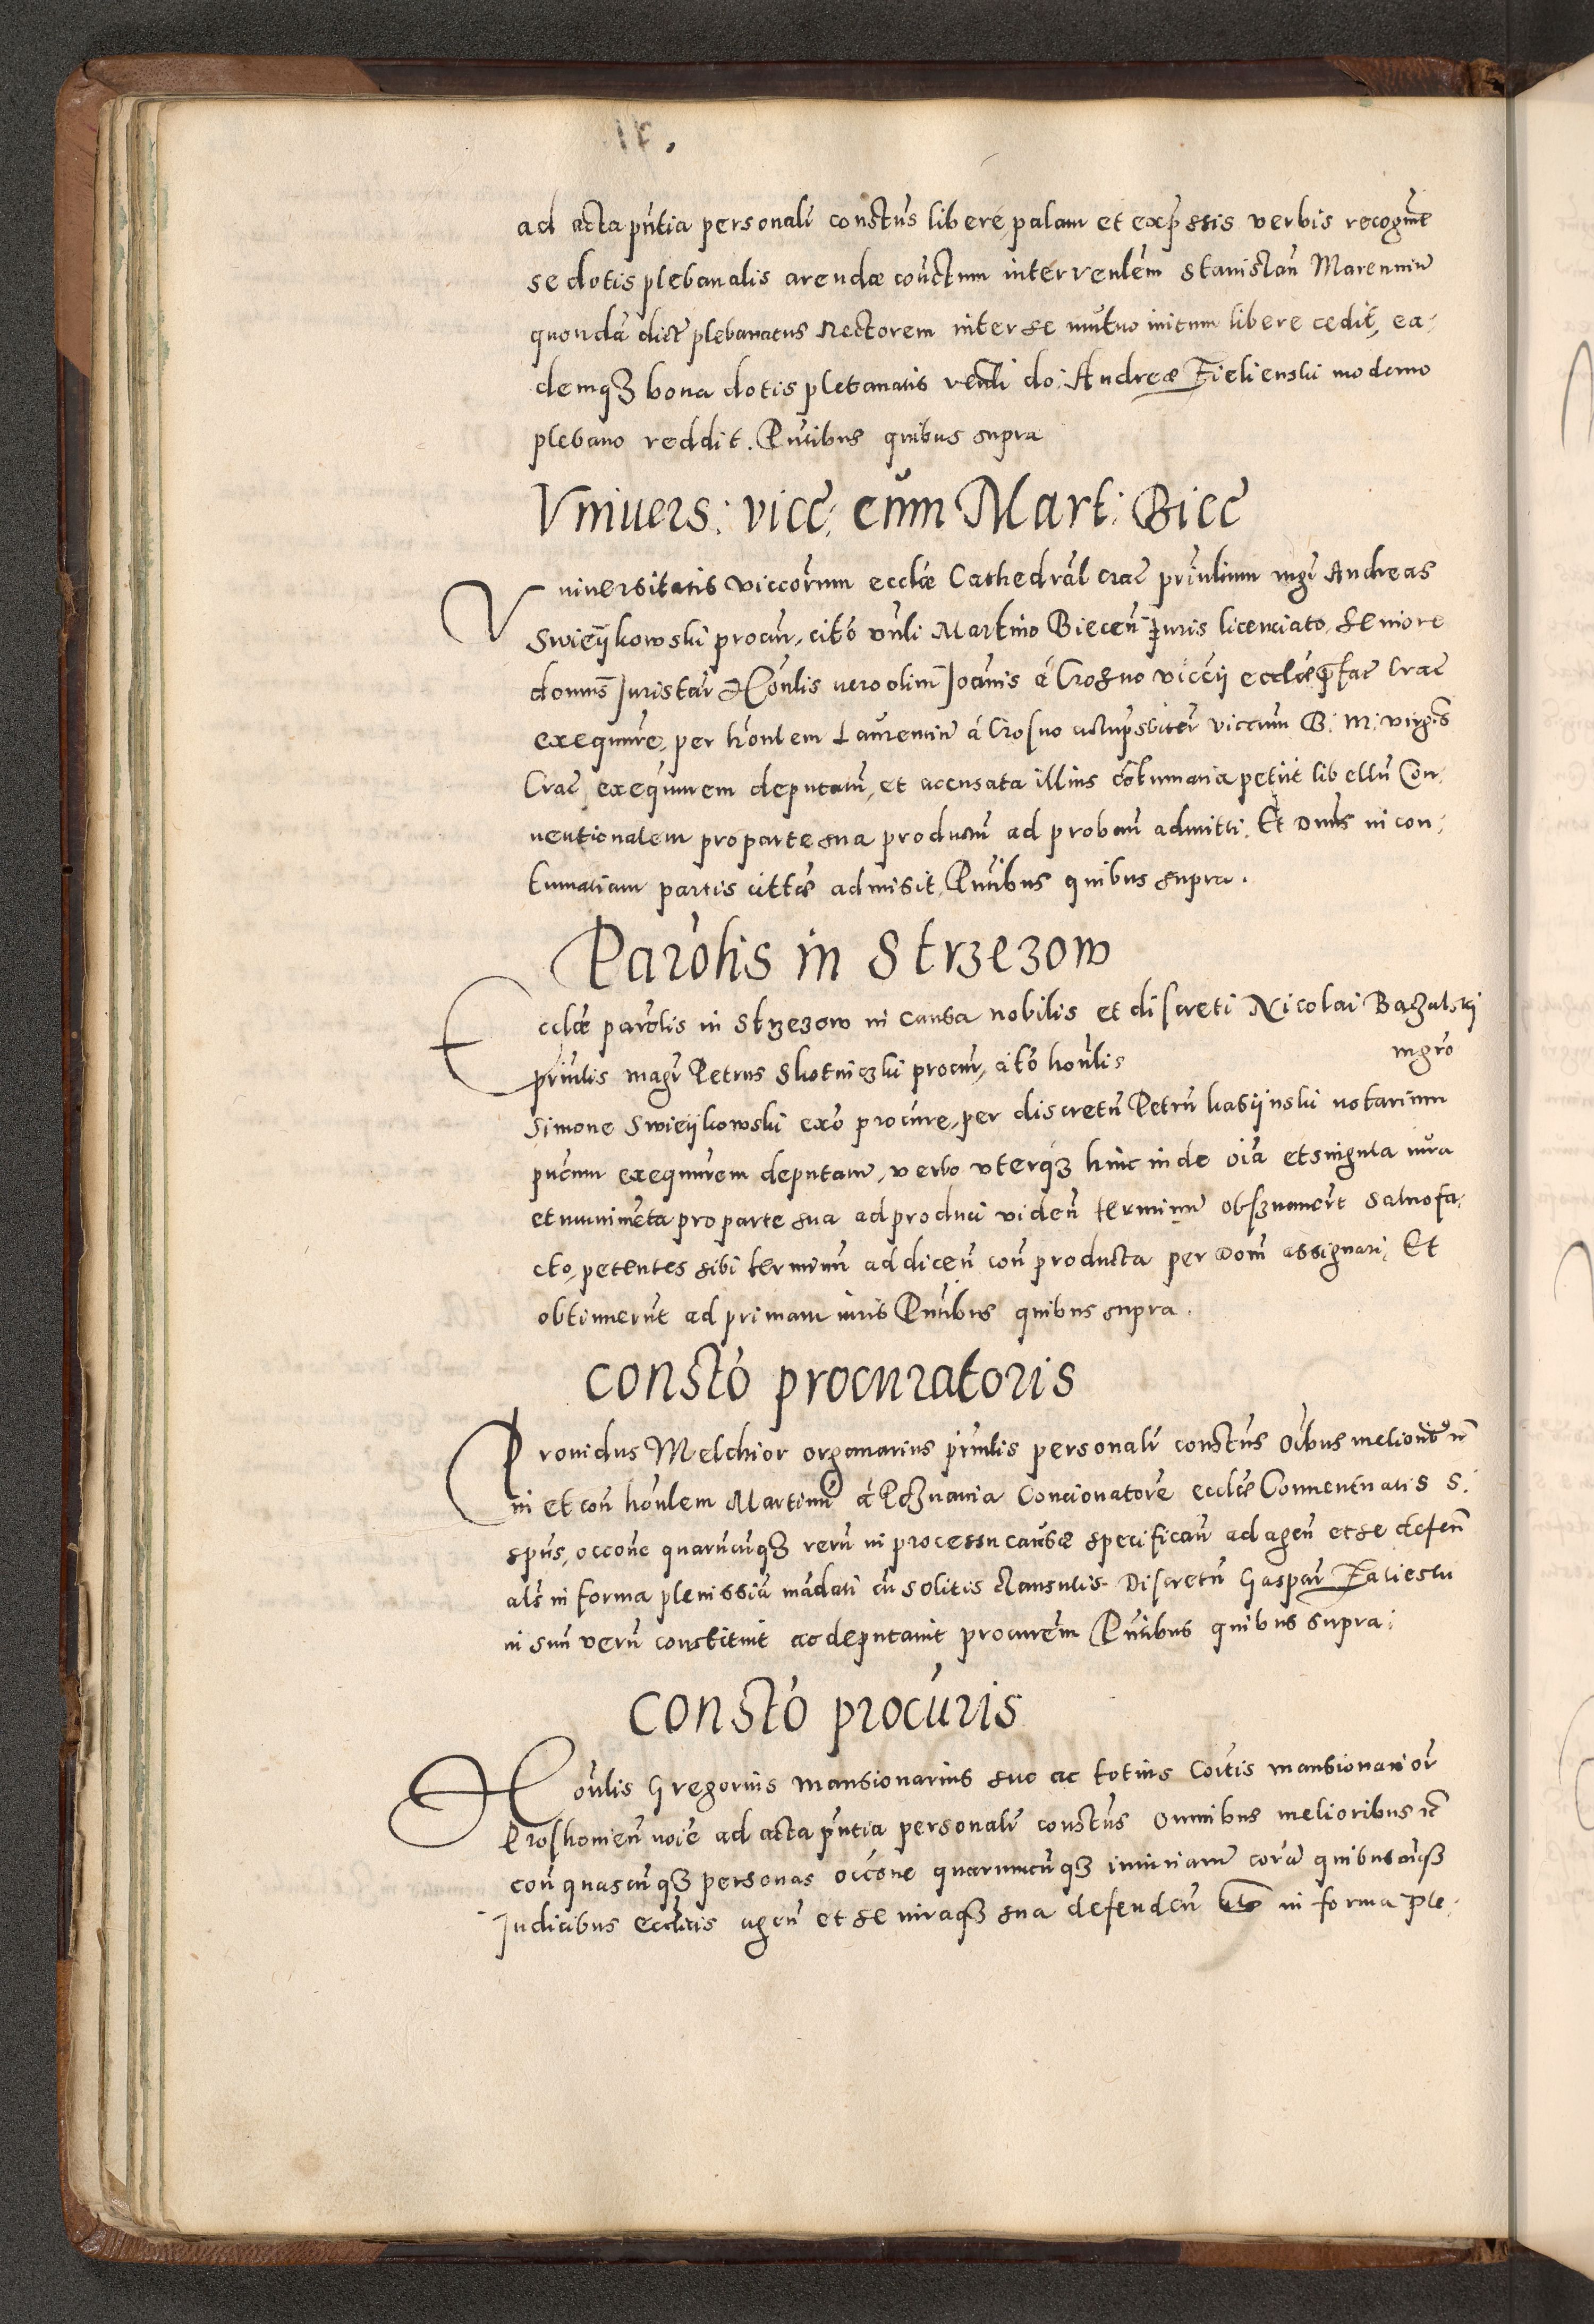 ad acta pn̄tia personalr̄ constūs liberè palam et exp̄ssis verbis recognvit
se dotis plebanalis arendæ con̄ctum inter ven̄lem Stanislaū Marennium
quondā dictī plebanatus Rectorem inter se mutuo initum libere cedit, ea-
demqȝ bona dotis plebanalis ven̄li do: Andreæ Zielienski moderno
plebano reddit. Pn̄tibus quibus supra
Vniuers: vicc: cum Mart: Biec
Vniversitatis viccorum eccl̄æ Cathedrāl Crac̄ prin̄lium mgr̄ Andreas
Swieÿkowski procur̄, cito vn̄li Martino Biecen̄ Juris licenciato, seniore
domus Juristār Hon̄lis uero olim Joānis à Crosno viccÿ eccl̄æ p̄fatæ Crac̄
exequūre, per hon̄lem Laurentiū à Crosno actu p̄sbiterū viccum B: M: virgīs
Crac̄ exequūrem deputatū, et accusata illius contumacia petiit libellū Con-
uentionalem pro parte sua productū ad proban̄ admitti. Et Dnus in con-
tumatiam partis cittæ admisit, Pn̄tibus quibus supra.
Parolis in Strzezow
Ecclæ parolis in Strzezow in causa nobilis et discreti Nicolai Bazalski
prin̄lis magr̄ Petrus Skotniczki procur̄, cito hon̄lis mgr̄o
Simone Swieÿkowski exo procure, per discretū Petrū kasÿnski notarium
pucum exequūrem deputatū, verbo vterqȝ hinc inde oīa et singula iura
et munimēta pro parte sua ad produci viden̄ terminū obseruauerūt saluo fa-
cto, petentes sibi terminū ad dicen̄ con̄ producta per dom̄ assignari. Et
obtinuerūt ad primam iuris Pn̄tibus quibus supra.
Constō procuratoris
Prouidus Melchior organarius prin̄lis personalr̄ constūs Oībus meliorib9 n̄
in et con̄ hon̄lem Martinū à Poznania Concionatorē eccl̄æ Conuentualis S.
spūs, occone quarūcūqȝ rerū in processu causæ specifican̄ ad agen̄ et se defen̄
als̄ in forma plenissīa mādati cū solitis clausulis Discretū Gaspar̄ Zaliesku
in suū verū constituit ac deputauit procurem̄ Pn̄tibus quibus supra.
Constō procuris
Hon̄lis Gregorius mansionarius suo ac totius Coitis mansionarior̄
Proshouien̄ noīe ad acta pn̄tia personalr̄ constūs Omnibus melioribus n̄
con̄ quascūqȝ personas occone quarumcūqȝ iniuriarū corā quibuscūqȝ
Judicibus eccl̄ticis agen̄ et se iuraqȝ sua defenden̄ in forma ple-